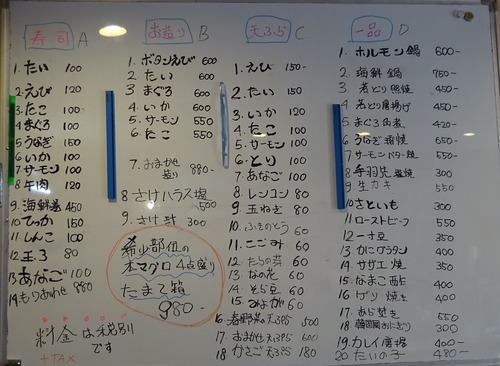 寿司 A
1. たい 100
2. えび 120
3. たこ 100
4. まぐろ 100
5. うなぎ 150
6. いか 100
7. サーモン 100
8. 牛肉 120
9. 海鮮巻 450
10. てっか 150
11. しんこ 100
12. 玉子 80
13. あなご 100
14. もりあわせ 880
料金は税別
です
+TAX
お造り B
1. ボタンえび 600
2. たい 600
3. まぐろ 600
4. いか 600
5. サーモン 550
6. たこ 550
7. おまかせ
盛り 880-
8. さけハラス塩
500
9. さけ 300
希少部位の
本マグロ4点盛り
たまて箱
980-
天ぷら C
1. えび 150-
2. たい 150
3. いか 120
4. たこ 100
5. サーモン 100
6. とり 100
7. あなご 100
8. レンコン 80
9. 玉ねぎ 80
10. ふきのとう 60
11. こごみ 60
12. たらの芽 60
13. なの花 60
14. そら豆 60
15. みょうが 60
16. 春野菜の天ぷら 500
17. おまかせ天ぷら 600
18. かさご天ぷら 180
一品 D
1. ホルモン鍋 600-
2. 海鮮鍋 750-
3. 若どり照焼 450-
4. 若どり唐揚げ 450-
5. まぐろ角煮 420-
6. うなぎ 600-
7. サーモンバター焼 550-
8. 手羽先塩焼 300
9. 生カキ 550-
10. さといも 300
11. ローストビーフ 550
12. 一寸豆 350
13. かにグラタン 400
14. サザエ焼 350
15. なまこ酢 400
16. 400
17. あら焚き 550
18. おにぎり 300
19. カレイ唐揚 400-
20. たいの子 480-